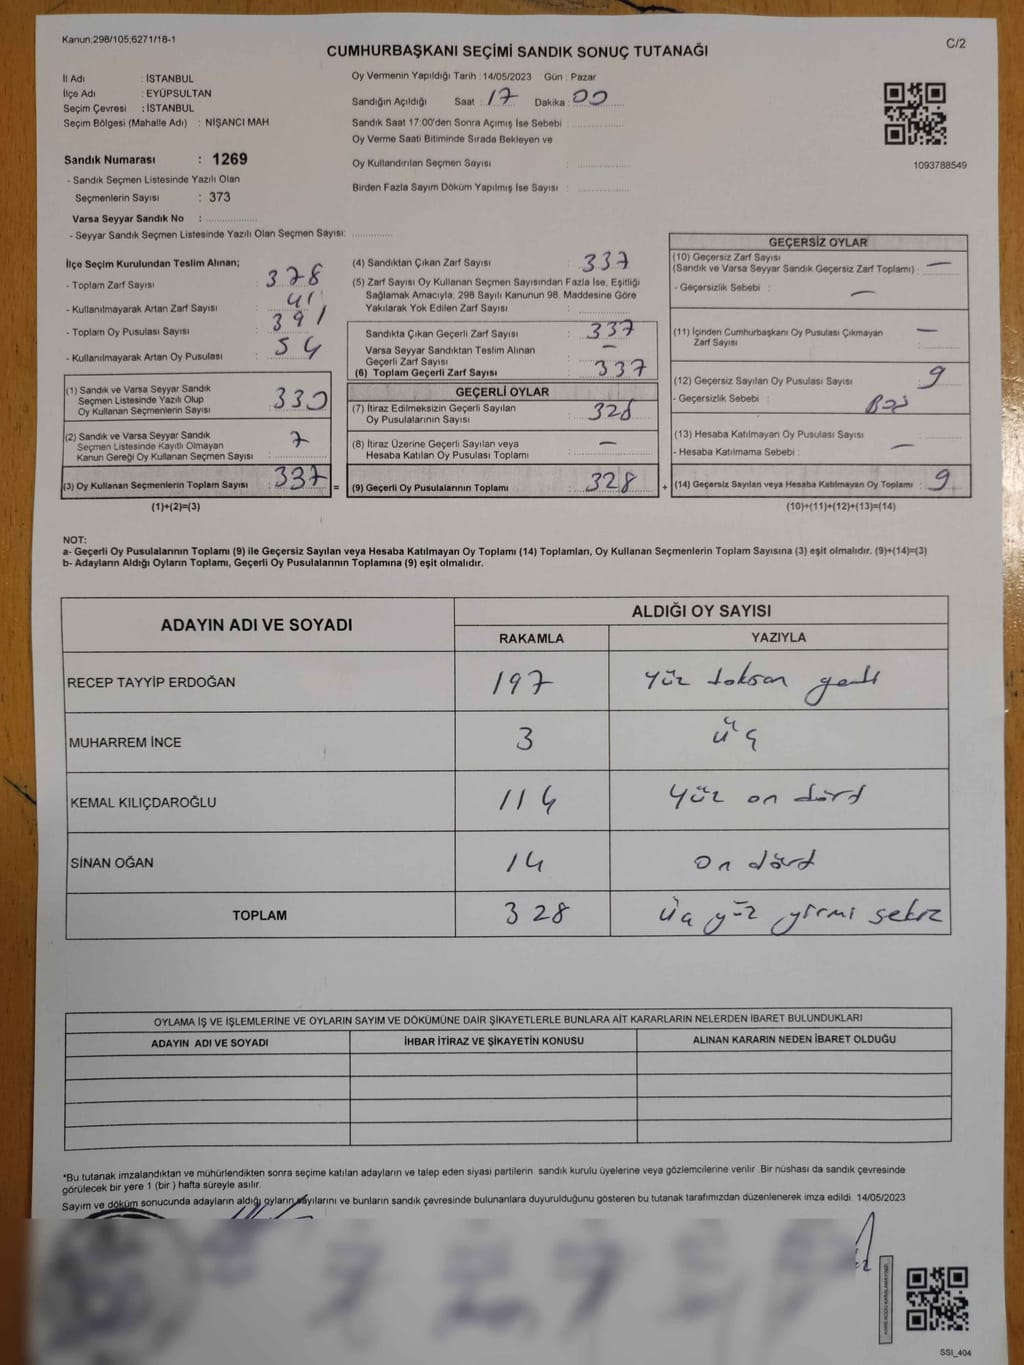 Kanun:298/105;6271/18-1
C/2
CUMHURBAŞKANI SEÇİMİ SANDIK SONUÇ TUTANAĞI
İl Adı : İSTANBUL
İlçe Adı : EYÜPSULTAN
Seçim Çevresi : İSTANBUL
Seçim Bölgesi (Mahalle Adı) : NİŞANCI MAH.
Sandık Numarası : 1269
- Sandık Seçmen Listesinde Yazılı Olan
Seçmenlerin Sayısı : 373
Varsa Seyyar Sandık No :
- Seyyar Sandık Seçmen Listesinde Yazılı Olan Seçmen Sayısı:
Oy Vermenin Yapıldığı Tarih : 14/05/2023 Gün : Pazar
Sandığın Açıldığı Saat : 17 Dakika : 00
Sandık Saat 17:00'den Sonra Açımış İse Sebebi :
Oy Verme Saati Bitiminde Sırada Bekleyen ve
Oy Kullandırılan Seçmen Sayısı :
Birden Fazla Sayım Döküm Yapılmış İse Sayısı :
1093788549
İlçe Seçim Kurulundan Teslim Alınan;
- Toplam Zarf Sayısı : 378
- Kullanılmayarak Artan Zarf Sayısı : 41
- Toplam Oy Pusulası Sayısı : 391
- Kullanılmayarak Artan Oy Pusulası : 54
(1) Sandık ve Varsa Seyyar Sandık
Seçmen Listesinde Yazılı Olup
Oy Kullanan Seçmenlerin Sayısı : 330
(2) Sandık ve Varsa Seyyar Sandık
Seçmen Listesinde Kayıtlı Olmayan
Kanun Gereği Oy Kullanan Seçmen Sayısı : 7
(3) Oy Kullanan Seçmenlerin Toplam Sayısı : 337 =
(1)+(2)=(3)
(4) Sandıktan Çıkan Zarf Sayısı : 337
(5) Zarf Sayısı Oy Kullanan Seçmen Sayısından Fazla İse, Eşitliği
Sağlamak Amacıyla; 298 Sayılı Kanunun 98. Maddesine Göre
Yakılarak Yok Edilen Zarf Sayısı :
Sandıkta Çıkan Geçerli Zarf Sayısı : 337
Varsa Seyyar Sandıktan Teslim Alınan
Geçerli Zarf Sayısı : —
(6) Toplam Geçerli Zarf Sayısı : 337
GEÇERLİ OYLAR
(7) İtiraz Edilmeksizin Geçerli Sayılan
Oy Pusulalarının Sayısı : 328
(8) İtiraz Üzerine Geçerli Sayılan veya
Hesaba Katılan Oy Pusulası Toplamı : —
(9) Geçerli Oy Pusulalarının Toplamı : 328 +
GEÇERSİZ OYLAR
(10) Geçersiz Zarf Sayısı
(Sandık ve Varsa Seyyar Sandık Geçersiz Zarf Toplamı) : —
- Geçersizlik Sebebi : —
(11) İçinden Cumhurbaşkanı Oy Pusulası Çıkmayan
Zarf Sayısı : —
(12) Geçersiz Sayılan Oy Pusulası Sayısı : 9
- Geçersizlik Sebebi : Boş
(13) Hesaba Katılmayan Oy Pusulası Sayısı :
- Hesaba Katılmama Sebebi : —
(14) Geçersiz Sayılan veya Hesaba Katılmayan Oy Toplamı : 9
(10)+(11)+(12)+(13)=(14)
NOT:
a- Geçerli Oy Pusulalarının Toplamı (9) ile Geçersiz Sayılan veya Hesaba Katılmayan Oy Toplamı (14) Toplamları, Oy Kullanan Seçmenlerin Toplam Sayısına (3) eşit olmalıdır. (9)+(14)=(3)
b- Adayların Aldığı Oyların Toplamı, Geçerli Oy Pusulalarının Toplamına (9) eşit olmalıdır.
ADAYIN ADI VE SOYADI
ALDIĞI OY SAYISI
RAKAMLA YAZIYLA
RECEP TAYYİP ERDOĞAN 197 yüz doksan yedi
MUHARREM İNCE 3 üç
KEMAL KILIÇDAROĞLU 114 yüz on dörd
SİNAN OĞAN 14 on dörd
TOPLAM 328 üç yüz yirmi sekiz
OYLAMA İŞ VE İŞLEMLERİNE VE OYLARIN SAYIM VE DÖKÜMÜNE DAİR ŞİKAYETLERLE BUNLARA AİT KARARLARIN NELERDEN İBARET BULUNDUKLARI
ADAYIN ADI VE SOYADI İHBAR İTİRAZ VE ŞİKAYETİN KONUSU ALINAN KARARIN NEDEN İBARET OLDUĞU
*Bu tutanak imzalandıktan ve mühürlendikten sonra seçime katılan adayların ve talep eden siyasi partilerin sandık kurulu üyelerine veya gözlemcilerine verilir. Bir nüshası da sandık çevresinde
görülecek bir yere 1 (bir ) hafta süreyle asılır.
Sayım ve döküm sonucunda adayların aldığı oyların sayılarını ve bunların sandık çevresinde bulunanlara duyurulduğunu gösteren bu tutanak tarafımızdan düzenlenerek imza edildi. 14/05/2023
SSI_404